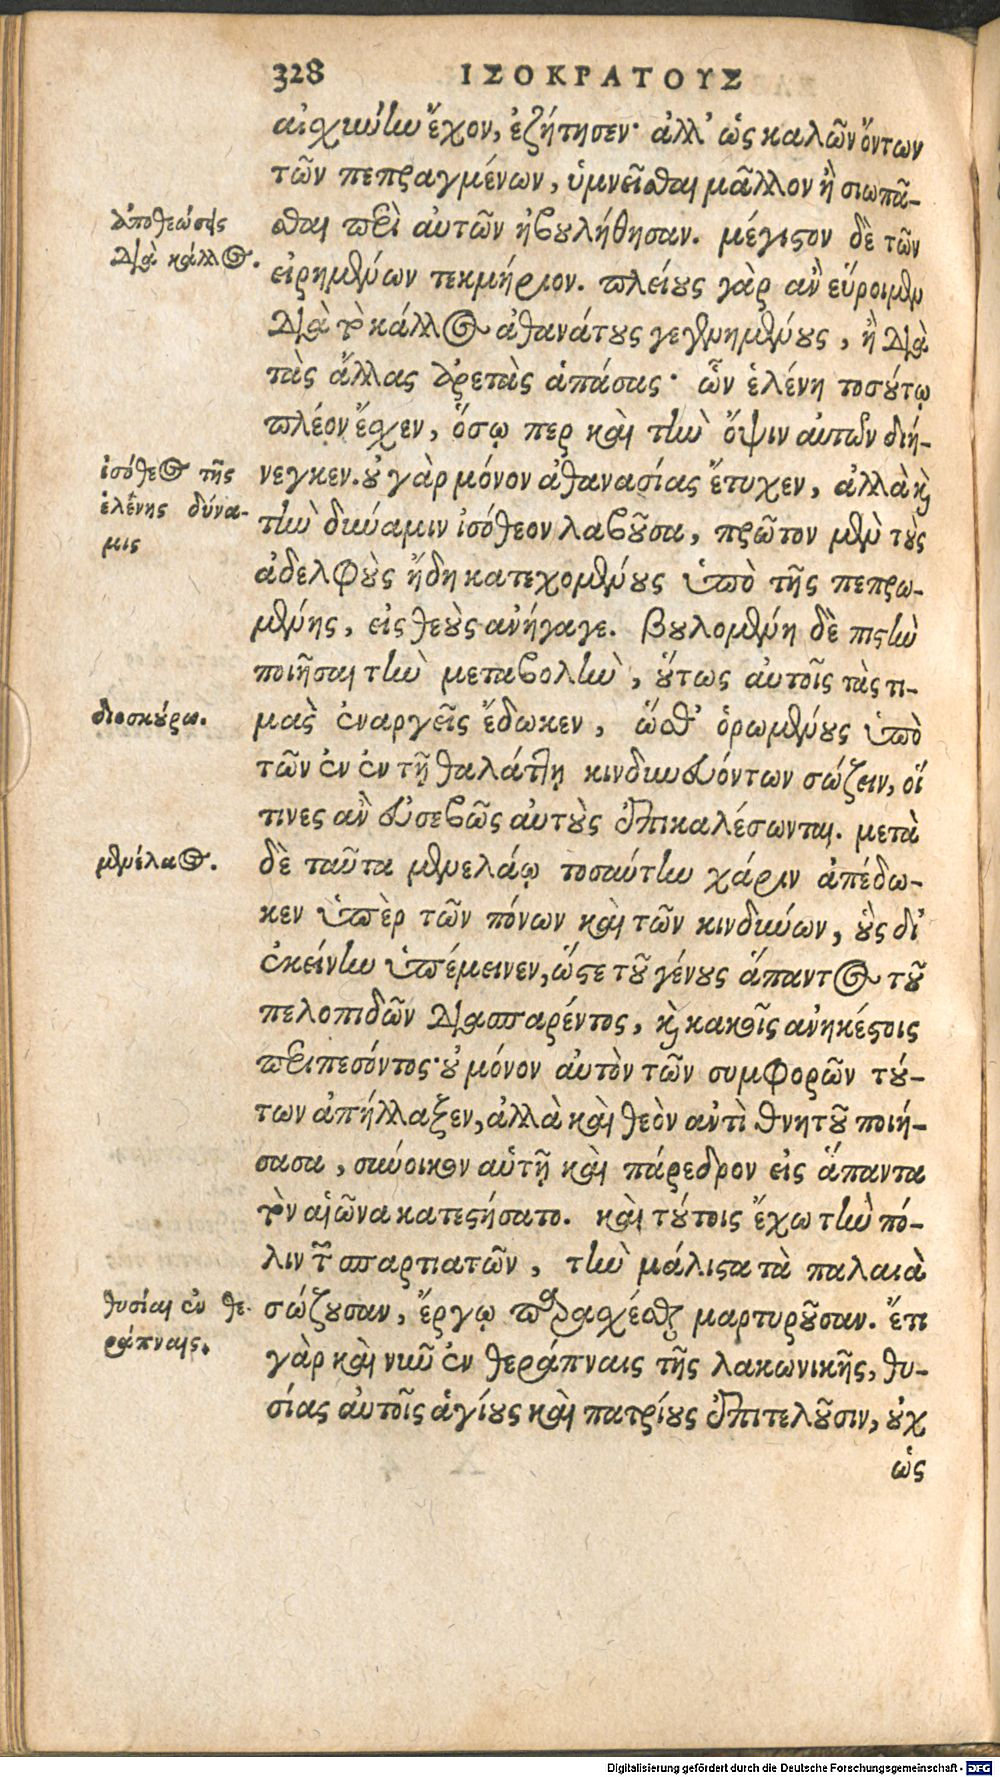 328 ΙΣΟΚΡΑΤΟΥΣ
αἰσχύνην ἔχον, ἐζήτησεν· ἀλλ' ὡς καλῶν ὄντων
τῶν πεπραγμένων, ὑμνεῖσθαι μᾶλλον ἢ σιωπᾶ-
σθαι περὶ αὐτῶν ἠβουλήθησαν. μέγιστον δὲ τῶν
εἰρημένων τεκμήριον. πλείους γὰρ ἂν εὕροιμεν
διὰ τὸ κάλλος ἀθανάτους γεγενημένους, ἢ διὰ
τὰς ἄλλας ἀρετὰς ἁπάσας· ὧν ἑλένη τοσούτῳ
πλέον ἔσχεν, ὅσῳ περ καὶ τὴν ὄψιν αὐτῶν διή-
νεγκεν. οὐ γὰρ μόνον ἀθανασίας ἔτυχεν, ἀλλὰ καὶ
τὴν δύναμιν ἰσόθεον λαβοῦσα, πρῶτον μὲν τοὺς
ἀδελφοὺς ἤδη κατεχομένους ὑπὸ τῆς πεπρω-
μένης, εἰς θεοὺς ἀνήγαγε. βουλομένη δὲ πιστὴν
ποιῆσαι τὴν μεταβολὴν, οὕτως αὐτοῖς τὰς τι-
μὰς ἐναργεῖς ἔδωκεν, ὥσθ' ὁρωμένους ὑπὸ
τῶν ἐν ἐν τῇ θαλάττῃ κινδυνευόντων σώζειν, οἵ
τινες ἂν εὐσεβῶς αὐτοὺς ἐπικαλέσωνται. μετὰ
δὲ ταῦτα μενελάῳ τοσαύτην χάριν ἀπέδω-
κεν ὑπὲρ τῶν πόνων καὶ τῶν κινδύνων, οὓς δι'
ἐκείνην ὑπέμεινεν, ὥστε τοῦ γένους ἅπαντος τοῦ
πελοπιδῶν διασπαρέντος, καὶ κακοῖς ἀνηκέστοις
περιπεσόντος· οὐ μόνον αὐτὸν τῶν συμφορῶν τού-
των ἀπήλλαξεν, ἀλλὰ καὶ θεὸν ἀντὶ θνητοῦ ποιή-
σασα, σύνοικον αὑτῇ καὶ πάρεδρον εἰς ἅπαντα
τὸν αἰῶνα κατεστήσατο. καὶ τούτοις ἔχω τὴν πό-
λιν τῶν σπαρτιατῶν, τὴν μάλιστα τὰ παλαιὰ
σώζουσαν, ἔργῳ παρασχέσθαι μαρτυροῦσαν. ἔτι
γὰρ καὶ νῦν ἐν θεράπναις τῆς λακωνικῆς, θυ-
σίας αὐτοῖς ἁγίους καὶ πατρίους ἐπιτελοῦσιν, οὐχ
ὡς
ἀποθεώσεις
διὰ κάλλος.
ἰσόθεος τῆς
ἑλένης δύνα-
μις
διοσκούροι.
μενέλαος.
θυσίαι ἐν θε-
ράπναις.
Digitalisierung gefördert durch die Deutsche Forschungsgemeinschaft - DFG